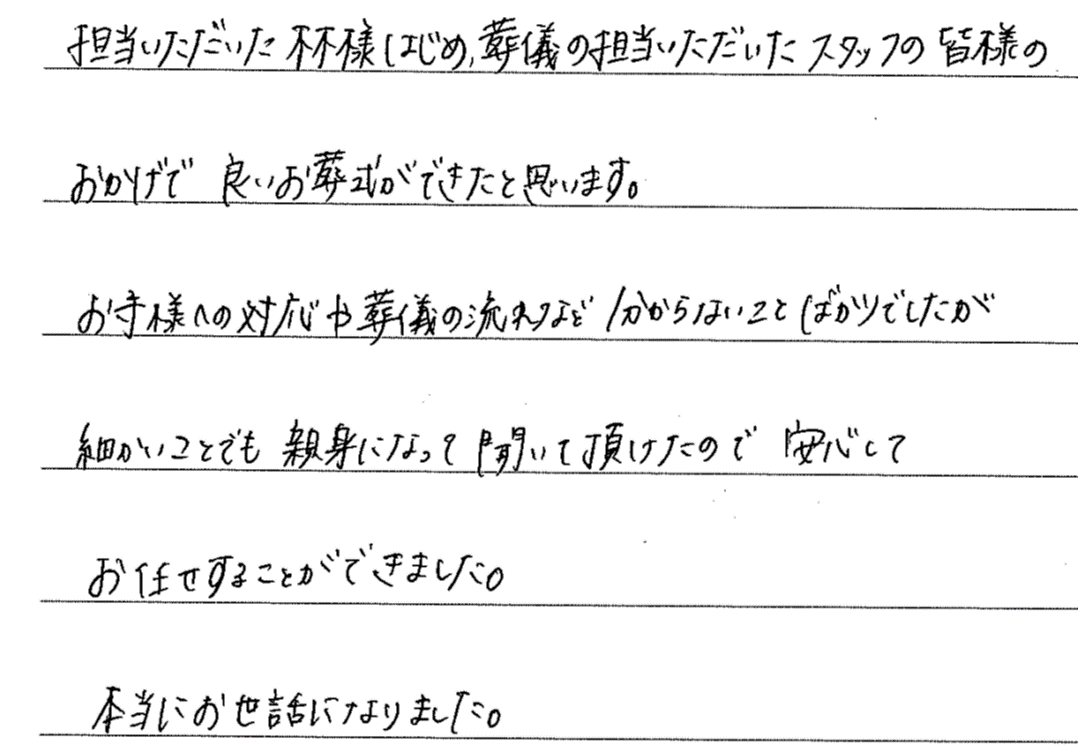 担当いただいた林様はじめ、葬儀の担当いただいたスタッフの皆様の
おかげで 良いお葬式ができたと思います。
お寺様への対応や葬儀の流れなど分からないことばかりでしたが
細かいことでも 親身になって聞いて頂けたので 安心して
お任せすることができました。
本当にお世話になりました。